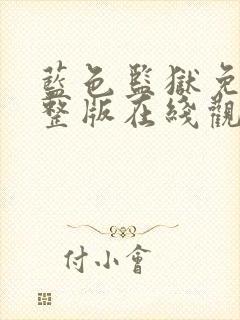 藍色監獄免
整版在綫觀
付小會